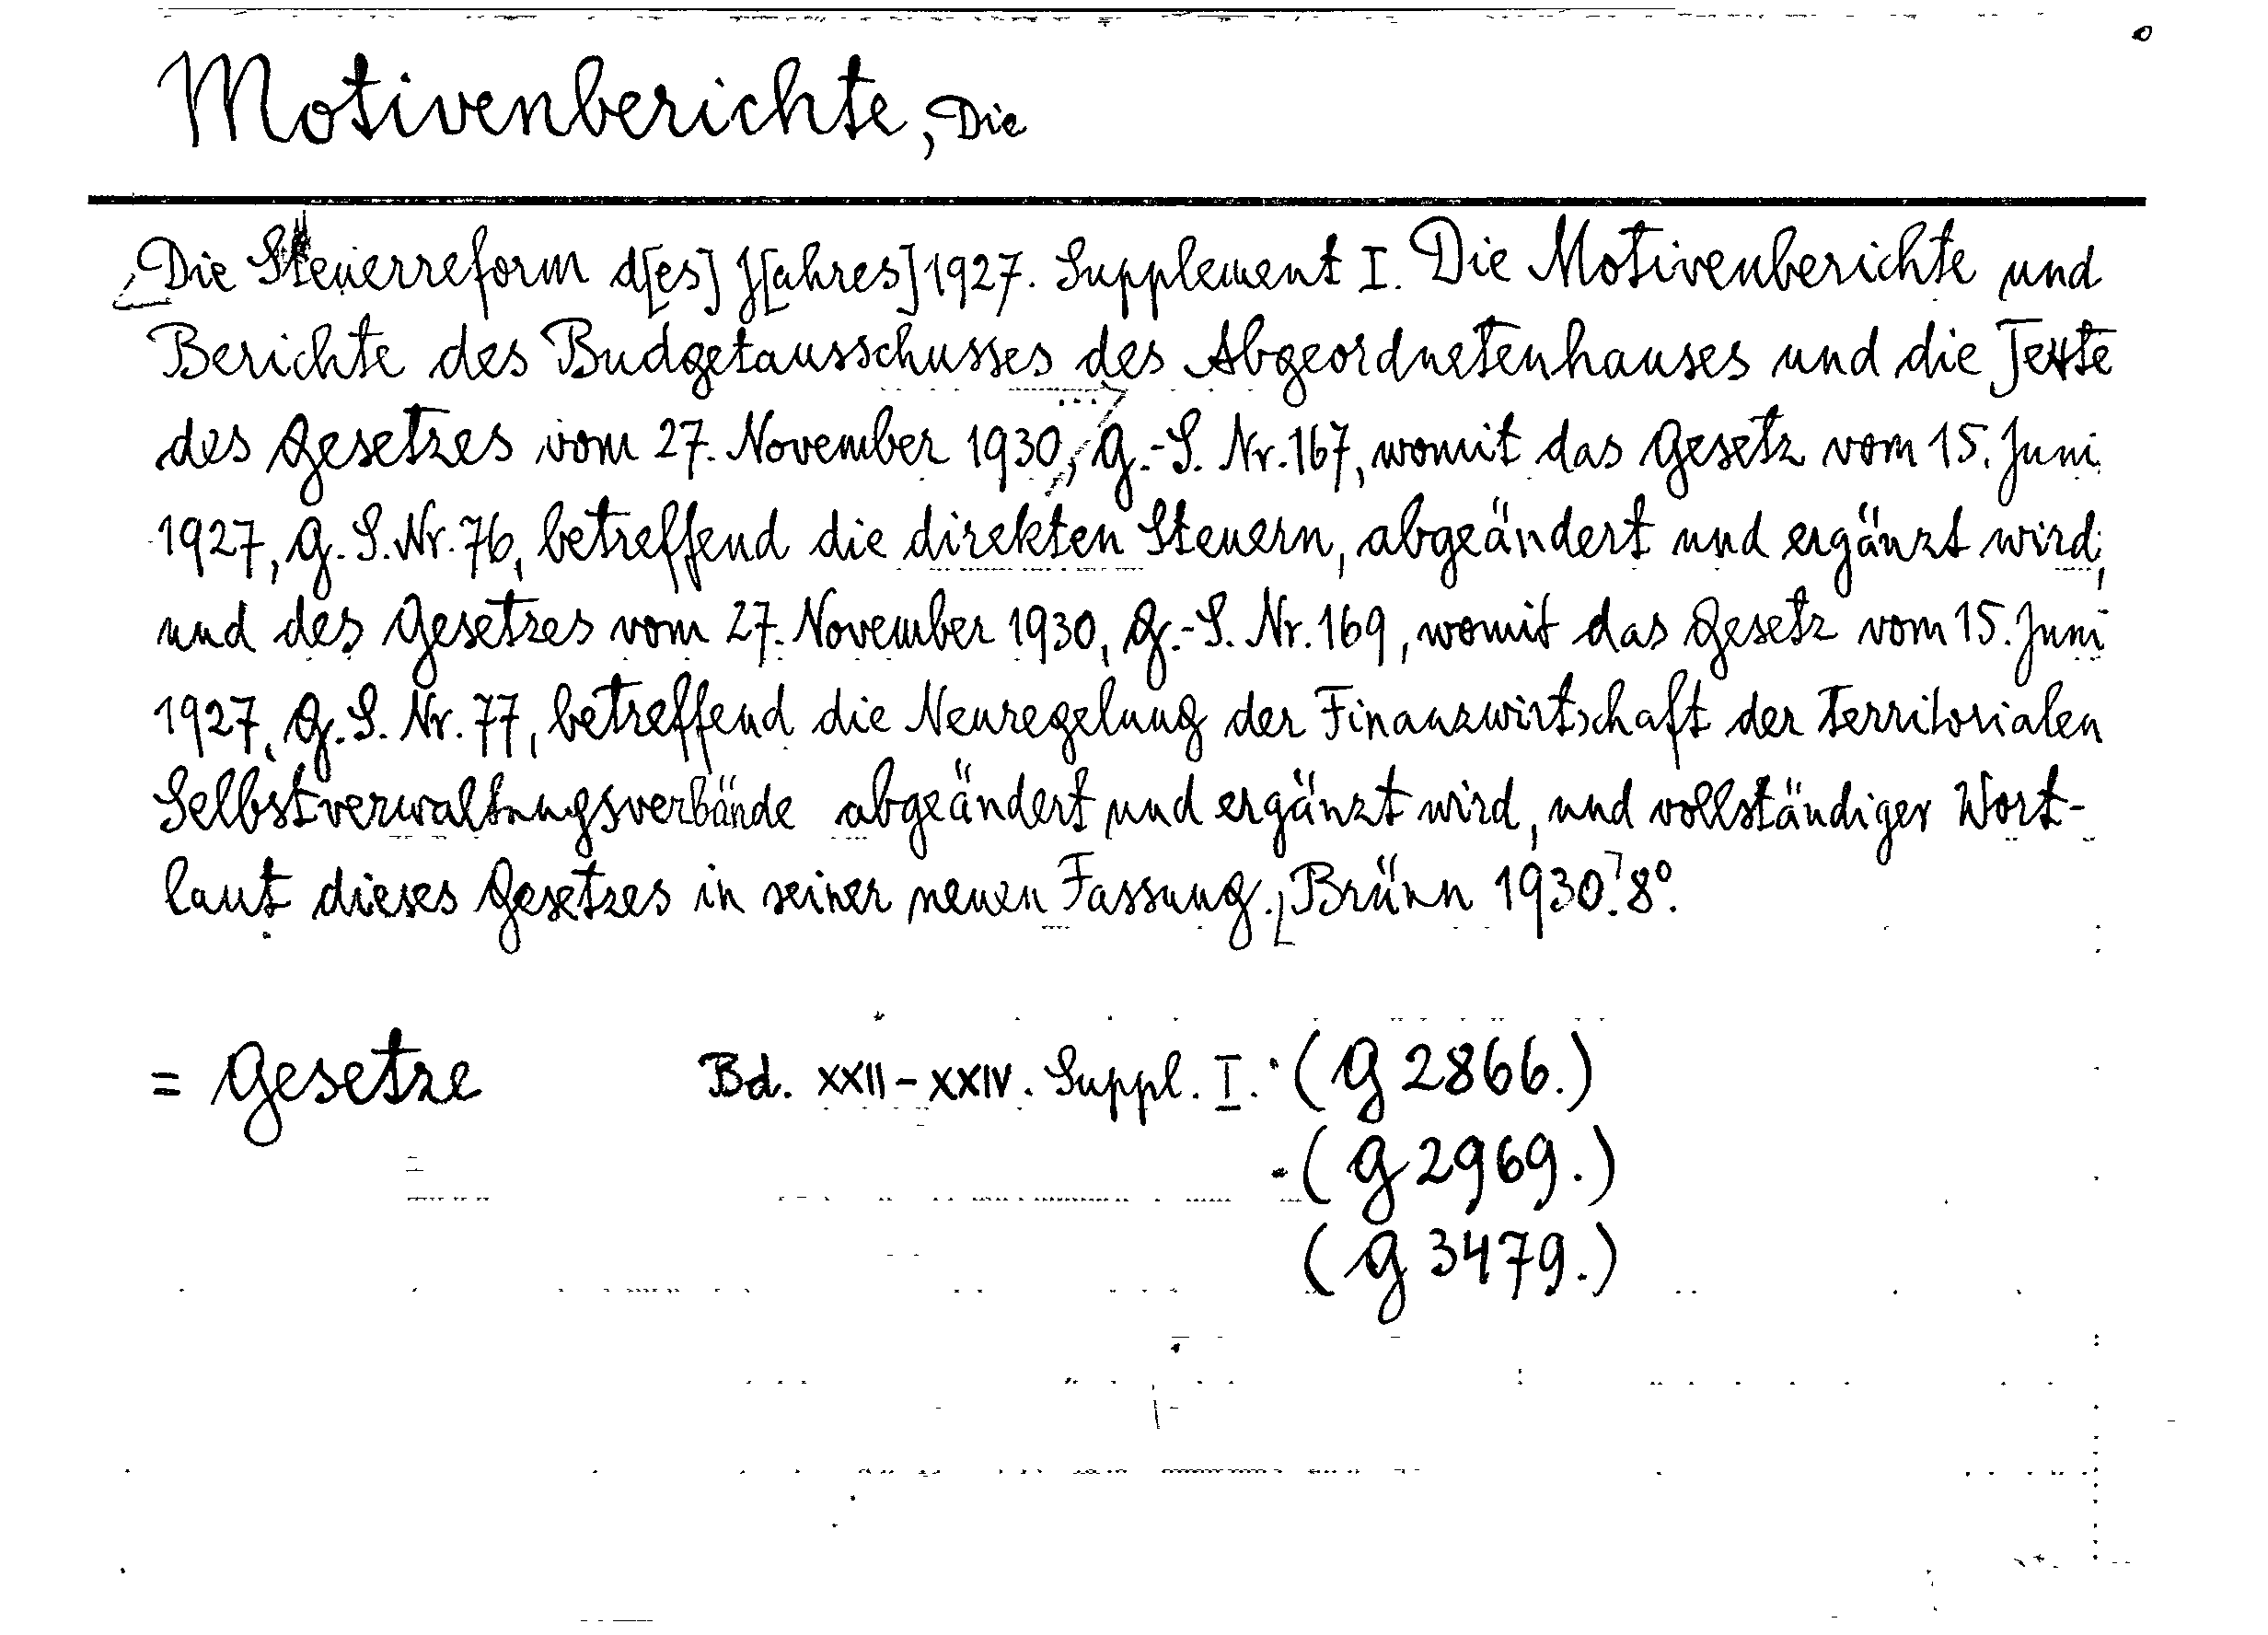 Motivenberichte, Die
Die Steuerreform d[es] J[ahres] 1927. Supplement I. Die Motivenberichte und
Berichte des Budgetausschusses des Abgeordnetenhauses und die Texte
des Gesetzes vom 27. November 1930, G.-S. Nr. 167, womit das Gesetz vom 15. Juni
1927, G. S. Nr. 76, betreffend die direkten Steuern, abgeändert und ergänzt wird,
und des Gesetzes vom 27. November 1930, G.-S. Nr. 169, womit das Gesetz vom 15. Juni
1927, G. S. Nr. 77, betreffend die Neuregelung der Finanzwirtschaft der territorialen
Selbstverwaltungsverbände abgeändert und ergänzt wird, und vollständiger Wort-
laut dieses Gesetzes in seiner neuen Fassung. [Brünn 1930.] 8°.
= Gesetze Bd. XXII-XXIV. Suppl. I. (G 2866.)
(G 2969.)
(G 3479.)